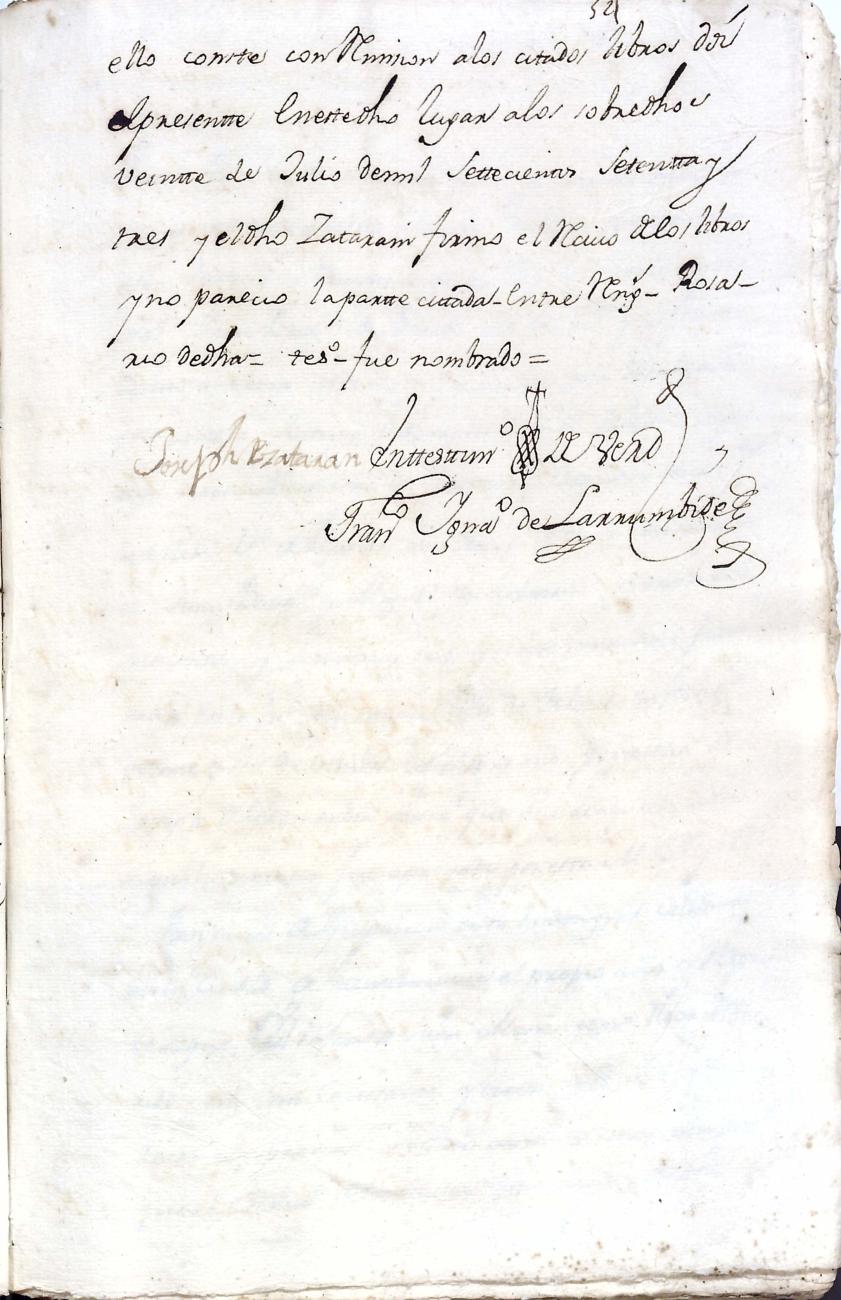 52
ello conste con Rmision alos citados libros doi
elpresentte Enestedho lugar alos sobredhos
veintte de Julio demil Settecientos Setentta y
tres y eldho Zatarain firmo el Rcivo delos libros
y no parecio laparte cittada - Entre Rngs - Rosa-
rio dedha = tesº - fue nombrado =
Joseph Zataran Enttesttimº de Verd
Franº Ignaº de Larrumbide